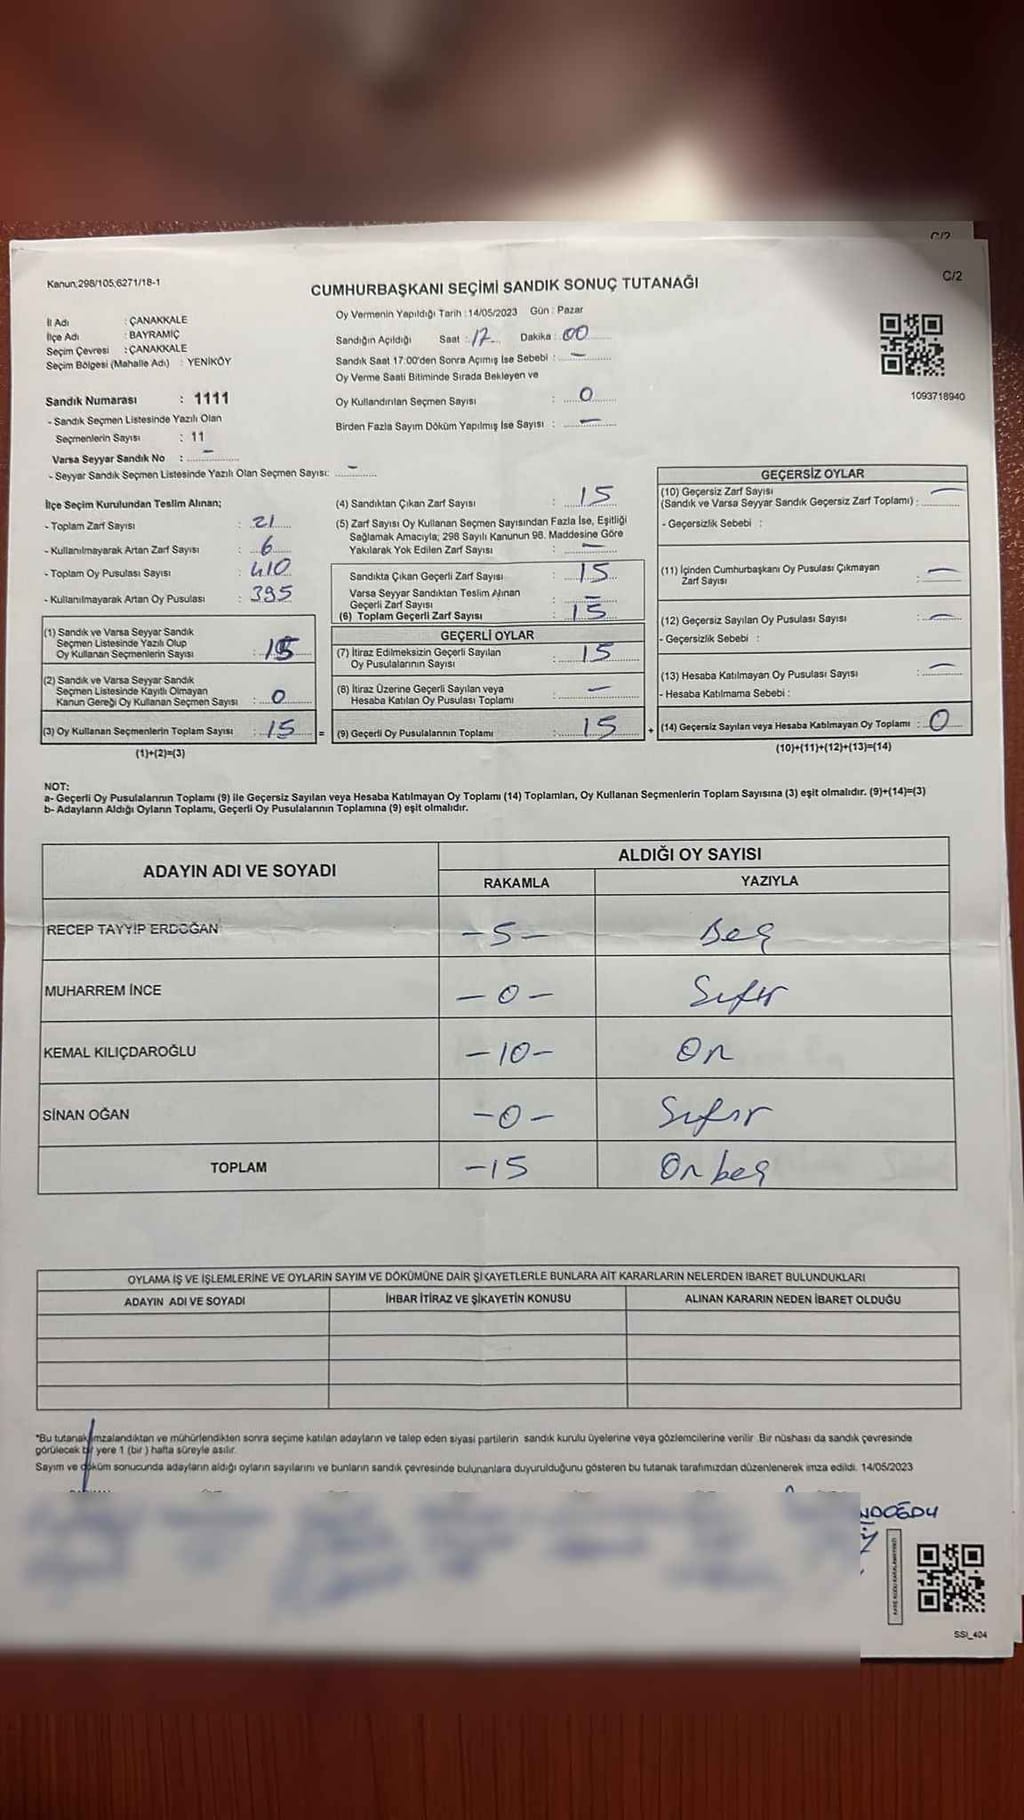 C/2
C/2
Kanun:298/105,6271/18-1
CUMHURBAŞKANI SEÇİMİ SANDIK SONUÇ TUTANAĞI
İl Adı : ÇANAKKALE
İlçe Adı : BAYRAMİÇ
Seçim Çevresi : ÇANAKKALE
Seçim Bölgesi (Mahalle Adı) : YENİKÖY
Sandık Numarası : 1111
- Sandık Seçmen Listesinde Yazılı Olan
Seçmenlerin Sayısı : 11
Varsa Seyyar Sandık No : –
- Seyyar Sandık Seçmen Listesinde Yazılı Olan Seçmen Sayısı: –
Oy Vermenin Yapıldığı Tarih : 14/05/2023 Gün : Pazar
Sandığın Açıldığı Saat : 17 Dakika : 00
Sandık Saat 17:00'den Sonra Açımış İse Sebebi : –
Oy Verme Saati Bitiminde Sırada Bekleyen ve
Oy Kullandırılan Seçmen Sayısı : 0
Birden Fazla Sayım Döküm Yapılmış İse Sayısı : –
1093718940
İlçe Seçim Kurulundan Teslim Alınan;
- Toplam Zarf Sayısı : 21
- Kullanılmayarak Artan Zarf Sayısı : 6
- Toplam Oy Pusulası Sayısı : 410
- Kullanılmayarak Artan Oy Pusulası : 395
(1) Sandık ve Varsa Seyyar Sandık
Seçmen Listesinde Yazılı Olup
Oy Kullanan Seçmenlerin Sayısı : 15
(2) Sandık ve Varsa Seyyar Sandık
Seçmen Listesinde Kayıtlı Olmayan
Kanun Gereği Oy Kullanan Seçmen Sayısı : 0
(3) Oy Kullanan Seçmenlerin Toplam Sayısı : 15 =
(1)+(2)=(3)
(4) Sandıktan Çıkan Zarf Sayısı : 15
(5) Zarf Sayısı Oy Kullanan Seçmen Sayısından Fazla İse, Eşitliği
Sağlamak Amacıyla; 298 Sayılı Kanunun 98. Maddesine Göre
Yakılarak Yok Edilen Zarf Sayısı : –
Sandıkta Çıkan Geçerli Zarf Sayısı : 15
Varsa Seyyar Sandıktan Teslim Alınan
Geçerli Zarf Sayısı : –
(6) Toplam Geçerli Zarf Sayısı : 15
GEÇERLİ OYLAR
(7) İtiraz Edilmeksizin Geçerli Sayılan
Oy Pusulalarının Sayısı : 15
(8) İtiraz Üzerine Geçerli Sayılan veya
Hesaba Katılan Oy Pusulası Toplamı : –
(9) Geçerli Oy Pusulalarının Toplamı : 15 +
GEÇERSİZ OYLAR
(10) Geçersiz Zarf Sayısı
(Sandık ve Varsa Seyyar Sandık Geçersiz Zarf Toplamı) : –
- Geçersizlik Sebebi :
(11) İçinden Cumhurbaşkanı Oy Pusulası Çıkmayan
Zarf Sayısı : –
(12) Geçersiz Sayılan Oy Pusulası Sayısı : –
- Geçersizlik Sebebi :
(13) Hesaba Katılmayan Oy Pusulası Sayısı : –
- Hesaba Katılmama Sebebi :
(14) Geçersiz Sayılan veya Hesaba Katılmayan Oy Toplamı : 0
(10)+(11)+(12)+(13)=(14)
NOT:
a- Geçerli Oy Pusulalarının Toplamı (9) ile Geçersiz Sayılan veya Hesaba Katılmayan Oy Toplamı (14) Toplamları, Oy Kullanan Seçmenlerin Toplam Sayısına (3) eşit olmalıdır. (9)+(14)=(3)
b- Adayların Aldığı Oyların Toplamı, Geçerli Oy Pusulalarının Toplamına (9) eşit olmalıdır.
ADAYIN ADI VE SOYADI ALDIĞI OY SAYISI
RAKAMLA YAZIYLA
RECEP TAYYİP ERDOĞAN -5- Beş
MUHARREM İNCE -0- Sıfır
KEMAL KILIÇDAROĞLU -10- On
SİNAN OĞAN -0- Sıfır
TOPLAM -15 On beş
OYLAMA İŞ VE İŞLEMLERİNE VE OYLARIN SAYIM VE DÖKÜMÜNE DAİR ŞİKAYETLERLE BUNLARA AİT KARARLARIN NELERDEN İBARET BULUNDUKLARI
ADAYIN ADI VE SOYADI İHBAR İTİRAZ VE ŞİKAYETİN KONUSU ALINAN KARARIN NEDEN İBARET OLDUĞU
*Bu tutanak imzalandıktan ve mühürlendikten sonra seçime katılan adayların ve talep eden siyasi partilerin sandık kurulu üyelerine veya gözlemcilerine verilir. Bir nüshası da sandık çevresinde
görülecek bir yere 1 (bir ) hafta süreyle asılır.
Sayım ve döküm sonucunda adayların aldığı oyların sayılarını ve bunların sandık çevresinde bulunanlara duyurulduğunu gösteren bu tutanak tarafımızdan düzenlenerek imza edildi. 14/05/2023
NDOĞDU
SSI_404